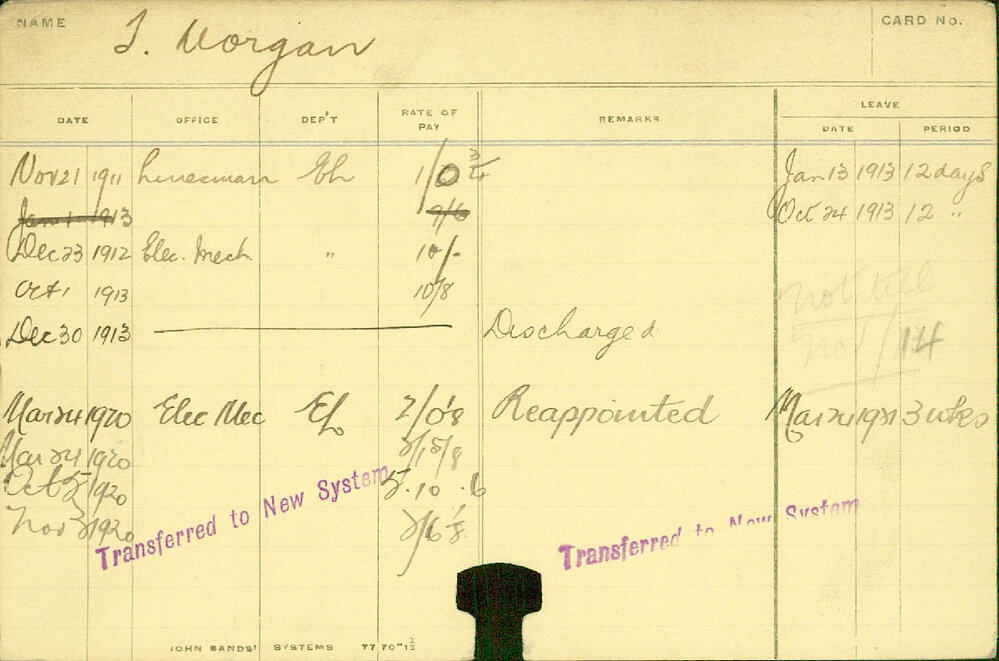 NAME T. Morgan CARD No.
LEAVE
DATE OFFICE DEP'T RATE OF PAY REMARKS DATE PERIOD
Nov 21 1911 Linesman Eh 1/0 3/4 Jan 13 1913 12 days
Jan 1 1913 9/6 Oct 24 1913 12 "
Dec 23 1912 Elec. Mech " 10/-
Oct 1 1913 10/8
not till
Dec 30 1913 Discharged
Nov / 14
Mar 24 1920 Elec Mec EL 2/0/8 Reappointed Mar 24 1921 3 wks
Mar 24 1920
Oct 1920 5.10.6
Nov 1920
Transferred to New System
Transferred to New System
JOHN SANDS' SYSTEMS